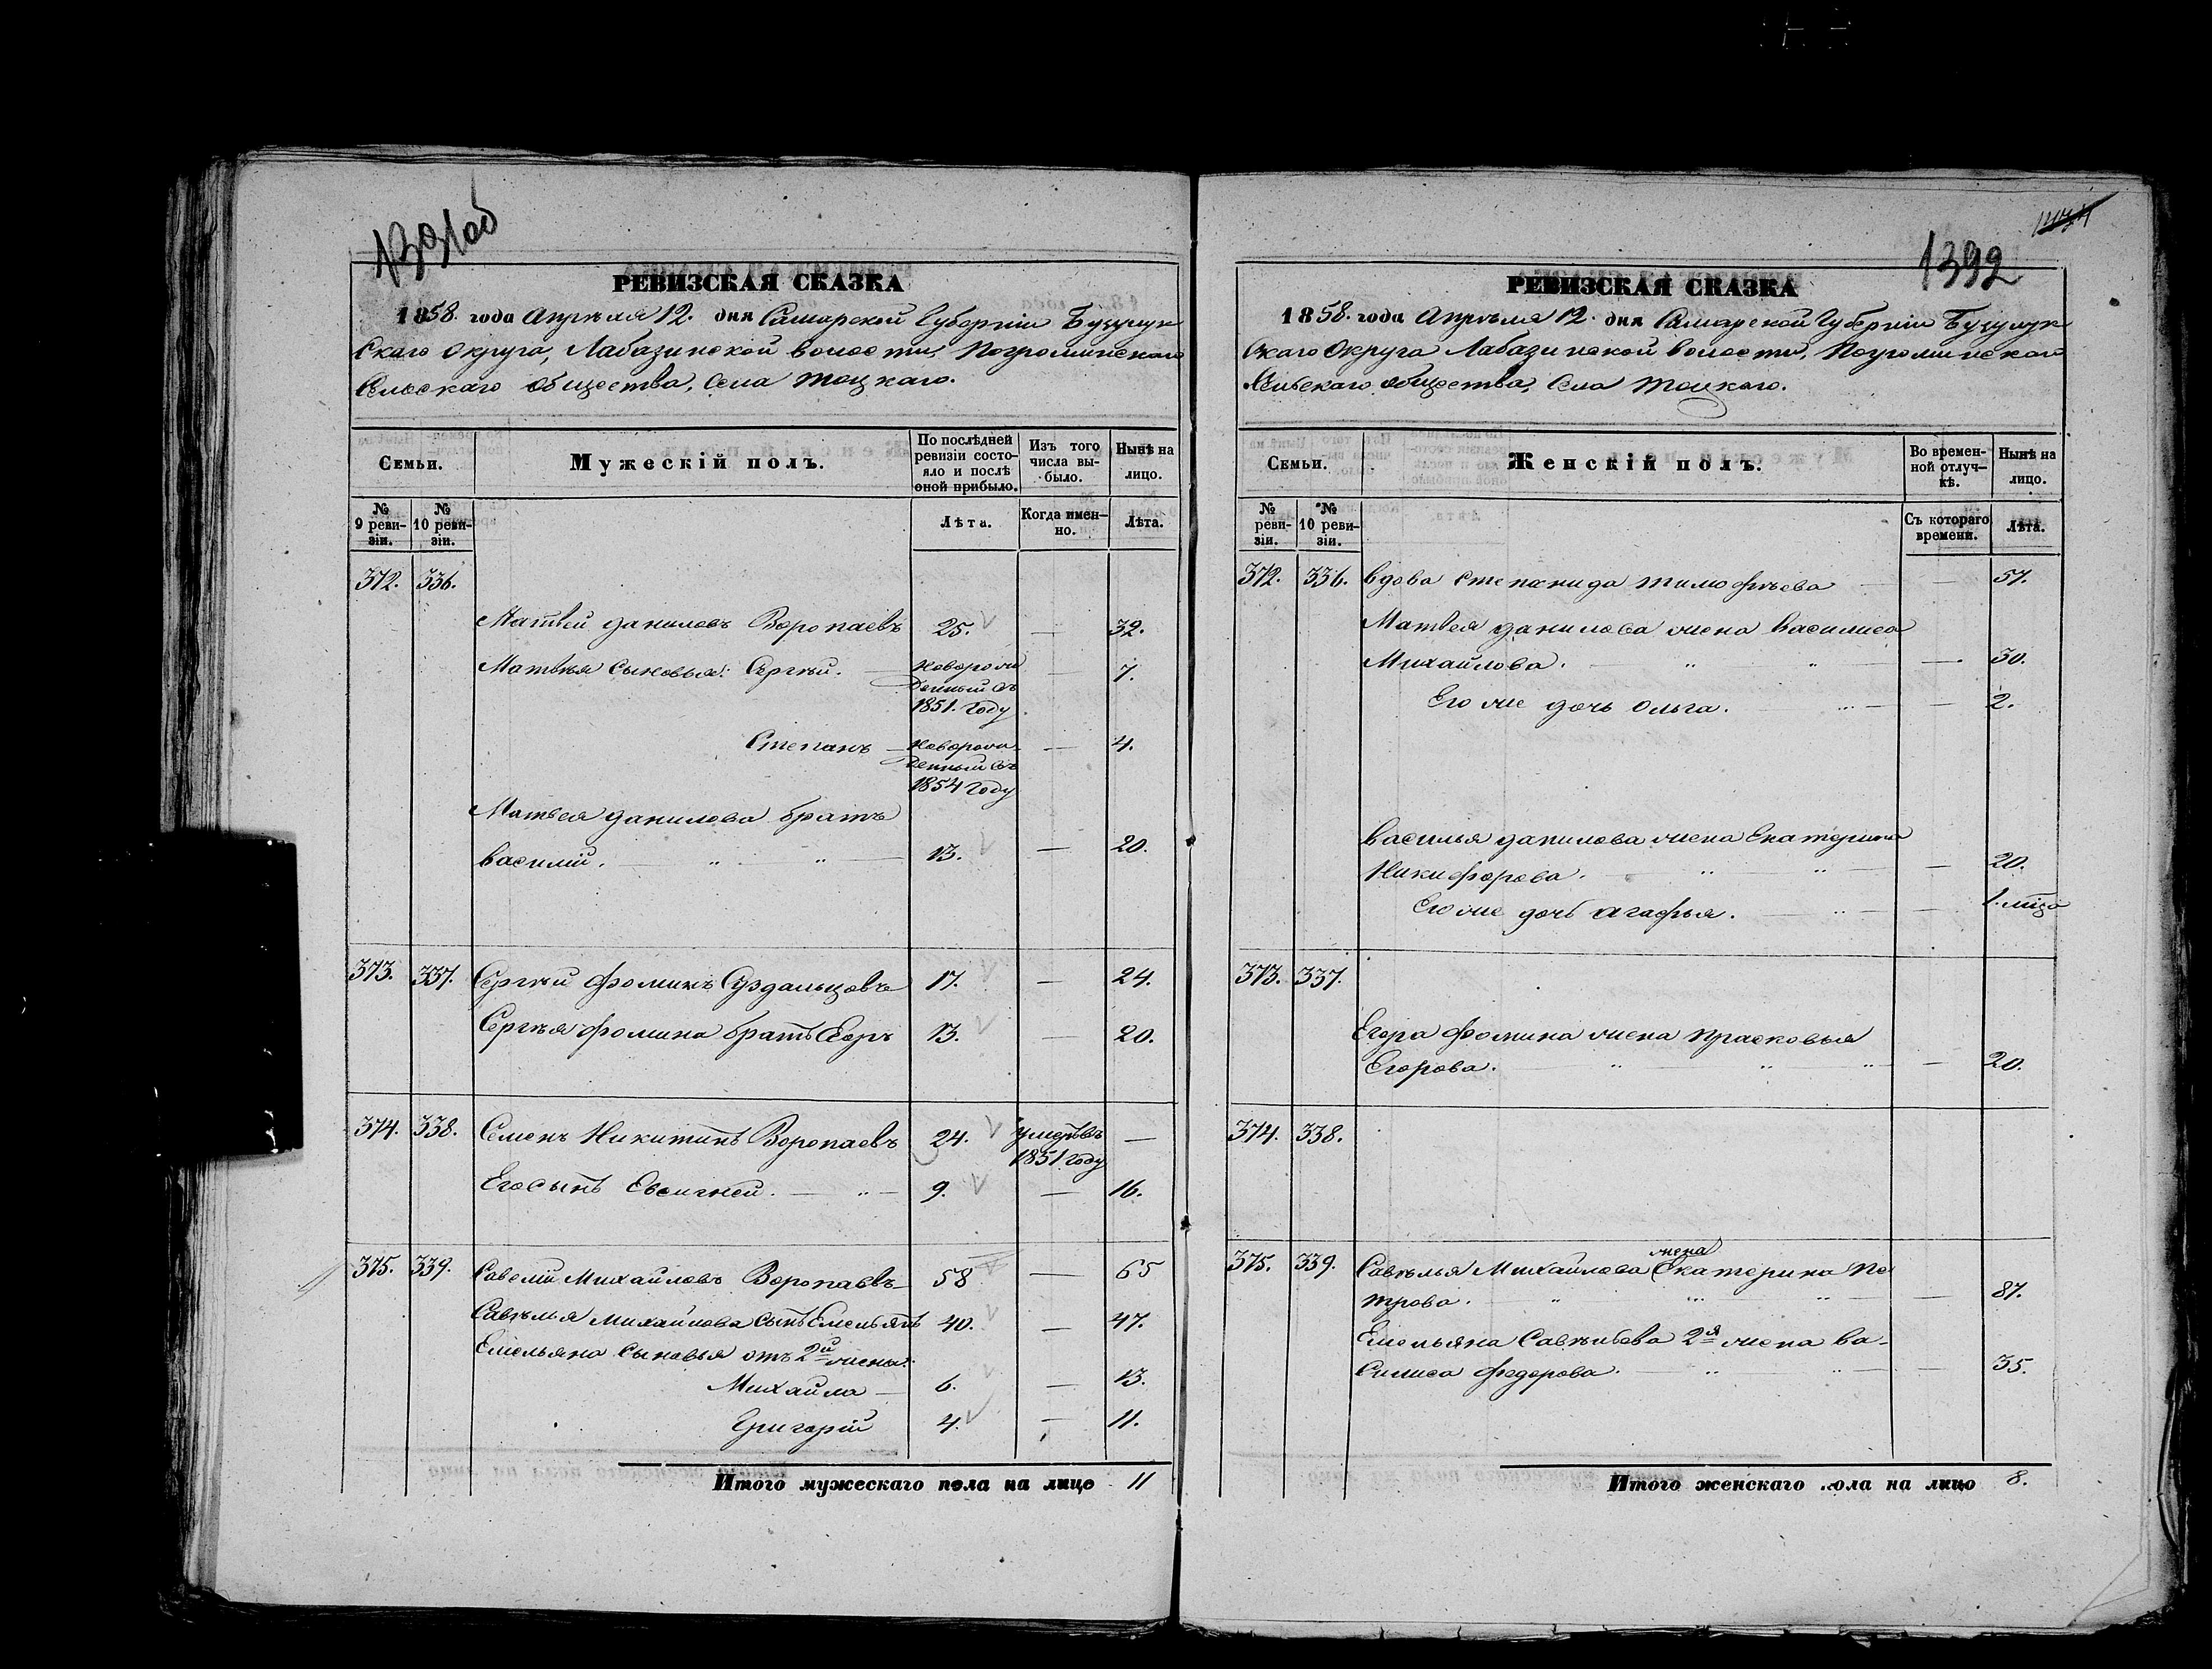 1391об
РЕВИЗСКАЯ СКАЗКА
1858. года Апрѣля 12. дня Самарской Губерніи Бузулук
скаго Округа, Лабазинской волости, Погроминскаго
Сельскаго общества, Села Тоцкаго.
Семьи.
Мужескій полъ.
По послѣдней ревизіи состояло и послѣ оной прибыло.
Изъ того числа выбыло.
Нынѣ на лицо.
№ 9 ревизіи.
№ 10 ревизіи.
Лѣта.
Когда именно.
Лѣта.
372. 336.
Матвей Даниловъ Воропаевъ 25. — 32.
Матвѣя сыновья: Сергѣй. — новорож
денный въ
1851. году — 7.
Степанъ — новорож
денный въ
1854 году — 4.
Матвея Данилова братъ
Василій. — „ — „ — 13. — 20.
373. 337. Сергѣй Фоминъ Суздальцовъ 17. — 24.
Сергѣя Фомина братъ Егоръ 13. — 20.
374. 338. Семенъ Никитинъ Воропаевъ 24. умеръ въ
1851 году —
Его сынъ Евсигней. — „ — 9. — 16.
375. 339. Савелій Михайловъ Воропаевъ 58 — 65
Савѣлья Михайлова сынъ Емельянъ 40. — 47.
Емельяна сыновья отъ 2й жены:
Михайла — 6. — 13.
Григорій 4. — 11.
Итого мужескаго пола на лицо 11
1392
РЕВИЗСКАЯ СКАЗКА
1858. года Апрѣля 12. дня Самарской Губерніи Бузулук
скаго Округа Лабазинской волости, Погроминскаго
Сельскаго общества, Села Тоцкаго.
Семьи.
Женскій полъ.
Во временной отлучкѣ.
Нынѣ на лицо.
№ ревизіи.
№ 10 ревизіи.
Съ котораго времени.
Лѣта.
372. 336. Вдова Степанида Тимофѣева — 57.
Матвея Данилова жена Василиса
Михайлова. — „ „ — 30.
Его же дочь Ольга. — — 2.
Василья Данилова жена Екатерина
Никифорова. — „ „ — 20.
Его же дочь Агафья. „ — — 1.
373. 337.
Егора Фомина жена Прасковья
Егорова. „ „ „ — 20.
374. 338.
375. 339. Савѣлья Михайлова жена Екатерина Пе
трова. „ „ „ — 87.
Емельяна Савѣльева 2я жена Ва-
силиса Федорова. — „ „ — 35.
Итого женскаго пола на лицо 8.